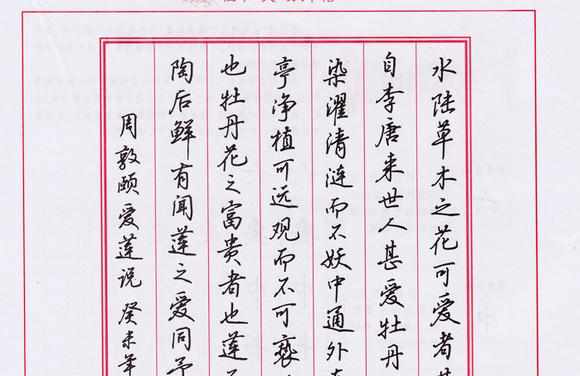 水陆草木之花可爱者
自李唐来世人甚爱牡丹
染濯清涟而不妖中通外
亭净植可远观而不可亵
也牡丹花之富贵者也莲
陶后鲜有闻莲之爱同予
周敦颐爱莲说 癸未年